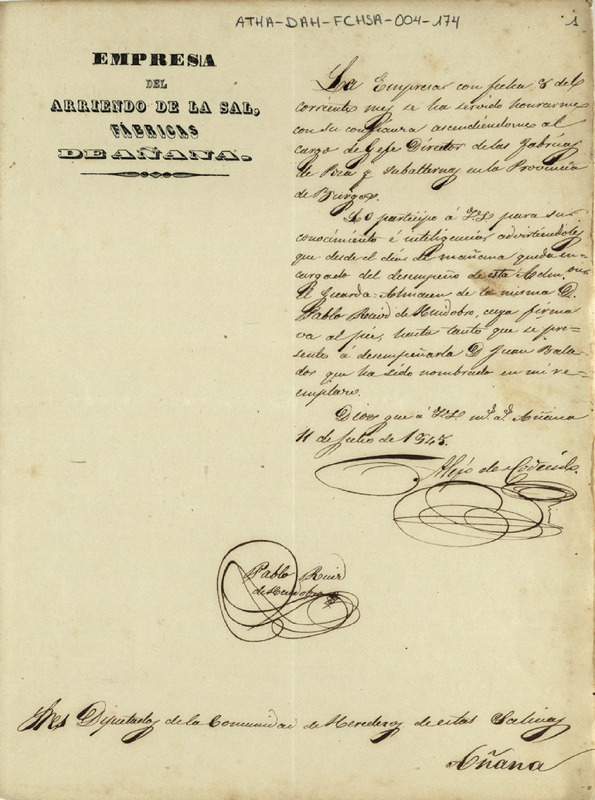 ATHA-DAH-FCHSA-004-174
1
EMPRESA
DEL
ARRIENDO DE LA SAL,
FÁBRICAS
DE AÑANA.
La Empresa con fecha 8 del
corriente mes se ha servido honrarme
con su confianza ascendiendome al
cargo de Gefe Director de las fabricas
de Poza y subalternas en la Provincia
de Burgos.
Lo participo á VV. SS. para su
conocimiento é inteligencia, advirtiendoles
que desde el dia de mañana queda en=
cargado del desempeño de esta Admon.
el Guarda-Almacen de la misma D.
Pablo Ruiz de Huidobro, cuya firma
va al pie, hasta tanto que se pre=
sente á desempeñarla D. Juan
que ha sido nombrado en mi re=
emplazo.
Dios gue á VV. SS. ms. as. Añana
11 de Julio de 1843.
Alejo de
Pablo Ruiz
de Huidobro
Sres Diputados de la Comunidad de Herederos de estas Salinas
Añana